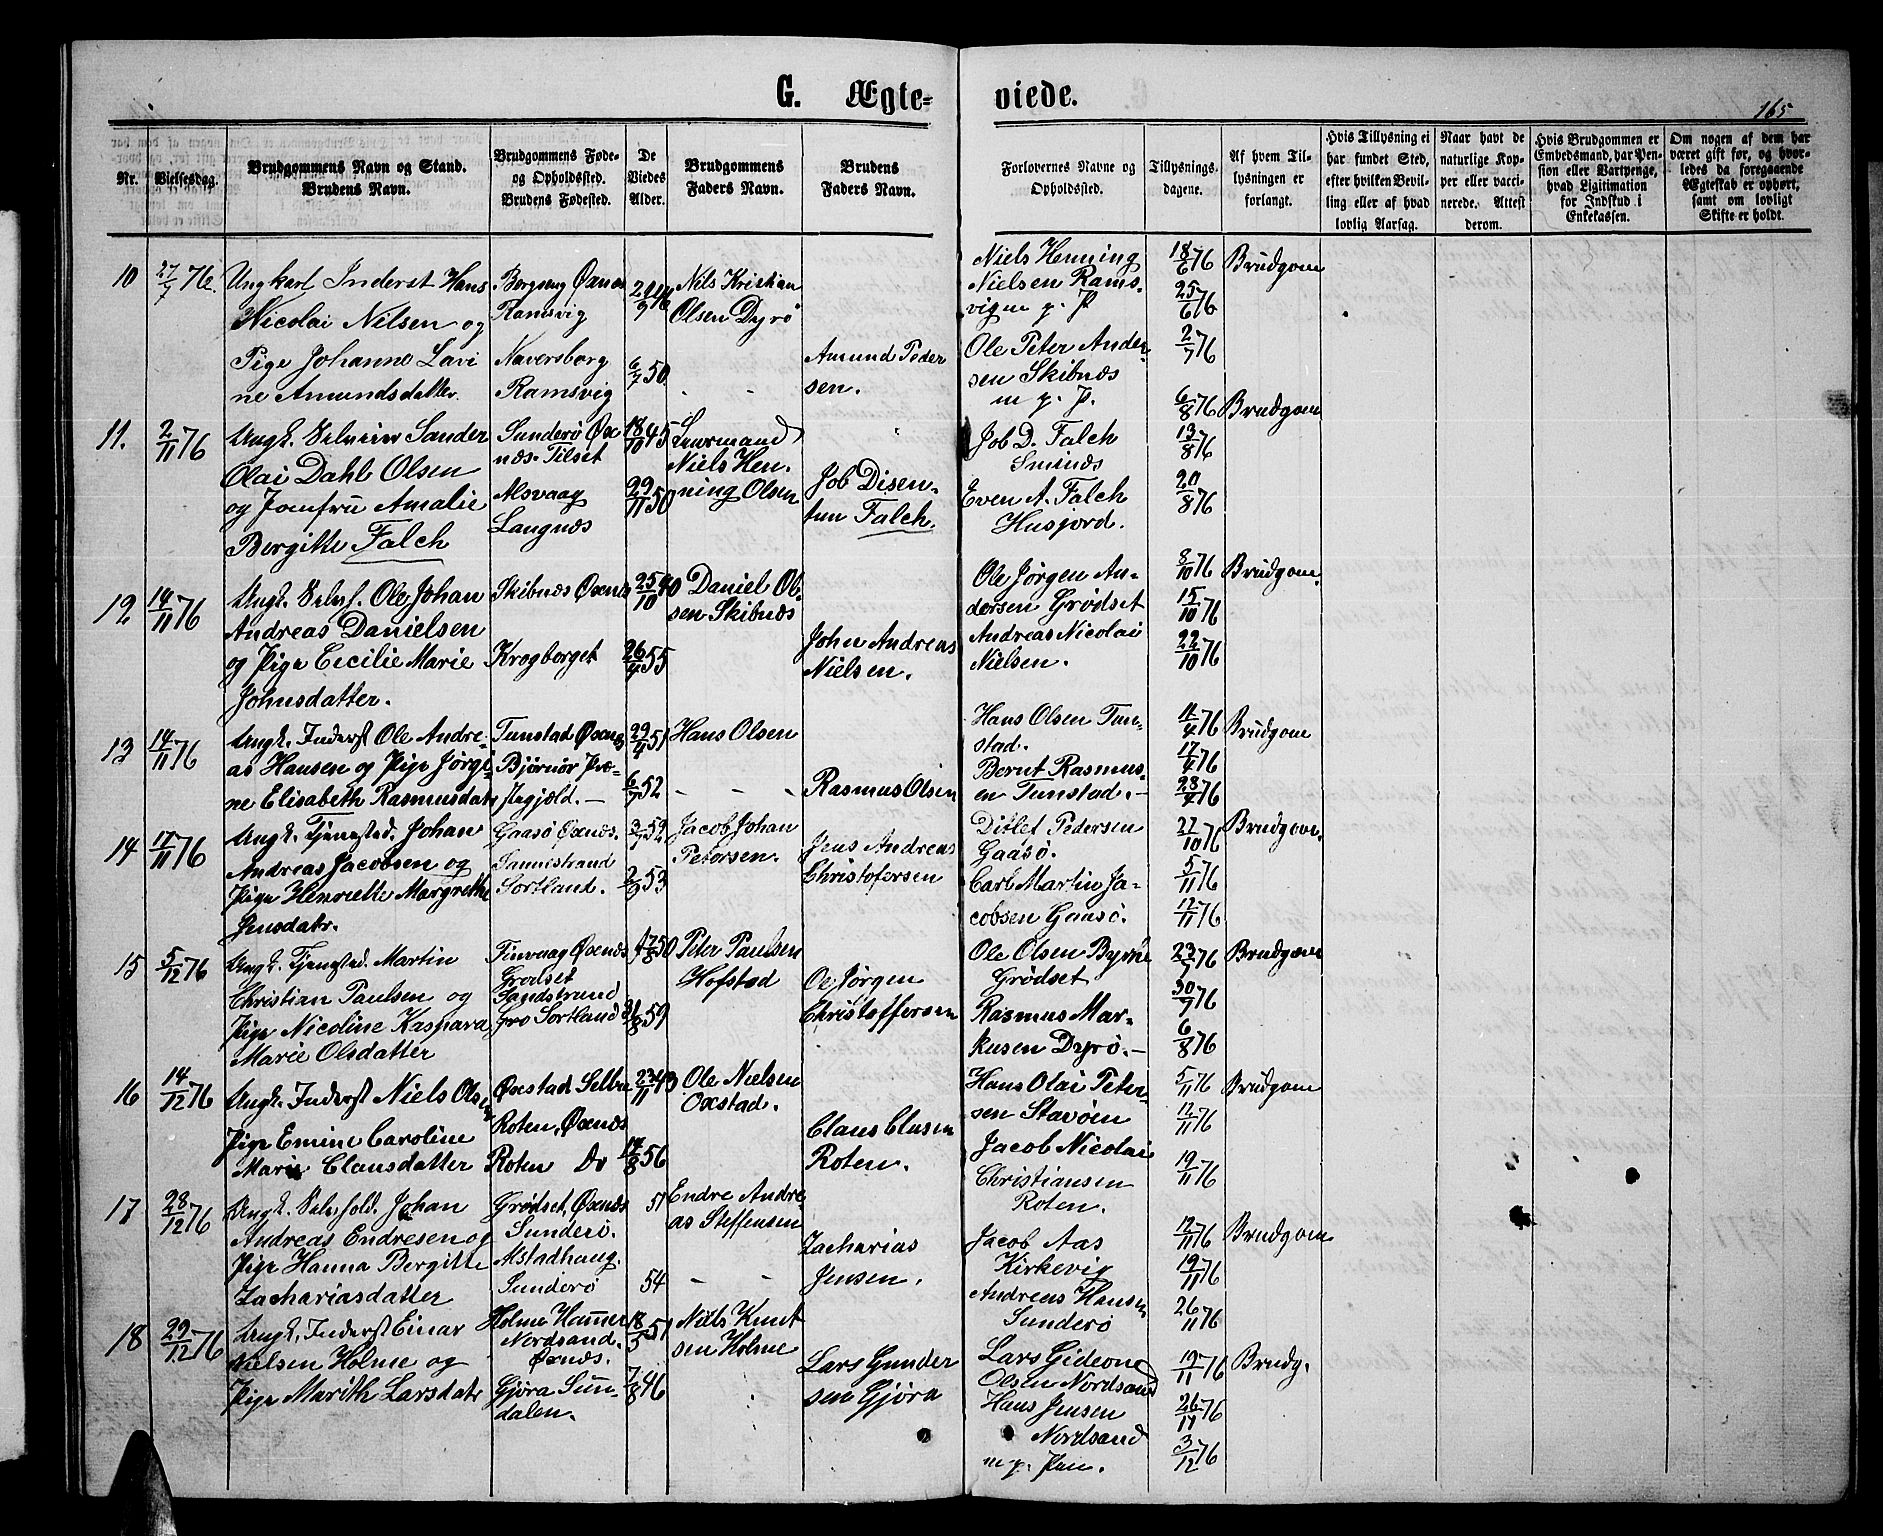 G. Ægte- viede.
165
Nr.
Vielsesdag.
Brudgommens Navn og Stand.
Brudens Navn.
Brudgommens Føde-
og Opholdssted.
Brudens Fødested.
De
Viedes
Alder.
Brudgommens
Faders Navn.
Brudens
Faders Navn.
Forlovernes Navne og
Opholdssted.
Tillysnings-
dagene.
Af hvem Til-
lysningen er
forlangt.
Hvis Tillysning ei
har fundet Sted,
efter hvilken Bevil-
ling eller af hvad
lovlig Aarsag.
Naar havt de
naturlige Kop-
per eller vacci-
nerede. Attest
derom.
Hvis Brudgommen er
Embedsmand, har Pen-
sion eller Vartpenge,
hvad Ligitimation
for Indskud i
Enkekassen.
Om nogen af dem har
været gift før, og hvor-
ledes da foregaaende
Ægteskab er ophørt,
samt om lovligt
Skifte er holdt.
10
27/7 76.
Ungkarl Inderst Hans
Nicolai Nilsen og
Pige Johanne Lavi
ne Amundsdatter.
Øxnes
Ramsvig
Naversborg
Ramsvig
6/7 50
Nils Kristian
Olsen Dyrø
Amund Peder
sen.
Niels Henning
Nielsen Rams-
vig m. p. P.
Ole Peter Ander
sen Skibnæs
m. p. P.
18/6 76
25/6 76
2/7 76
Brudgom
11.
2/11 76
Ungk. Sander
Olai Dahl Olsen
og Jomfru Amalie
Bergitte Falch
Sunderø Øx
næs. Tilset
Alsvaag
Langnæs
18/10 45
29/11 50
Niels Hen-
ning Olsen
Job Disen-
tun Falch.
Job D. Falch
Smines
Even A. Falch
Husjord.
6/8 76
13/8 76
20/8 76
Brudgom
12
14/11 76
Ungk. Selvf. Ole Johan
Andreas Danielsen
og Pige Cecilie Marie
Johnsdatter.
Skibnæs Øxnes
Krogborget
25/10 40
26/4 55
Daniel Ol-
sen Skibnæs
John Andreas
Nielsen.
Ole Jørgen An-
dersen Grødset
Andreas Nicolai
Nielsen.
8/10 76
15/10 76
22/10 76
Brudgom.
13
14/11 76
Ungk. Inderst Ole Andre-
as Hansen og Pige Jørgi-
ne Elisabeth Rasmusdatr
Tunstad Øxnes
Bjørnør Præ-
stegjæld. –
29/4 51
6/7 52
Hans Olsen
Rasmus Olsen
Hans Olsen Tun-
stad.
Bernt Rasmus-
en Tunstad. –
11/4 76
17/4 76
28/4 76
Brudgom
14
17/11 76
Ungk. Tjenested. Johan
Andreas Jacobsen og
Pige Henriette Margrethe
Jensdatr.
Gaasø Øxnæs.
Sannistrand
Sortland.
3/7 52
2/9 53
Jacob Johan
Petersen.
Jens Andreas
Christofersen
Ditlef Pedersen
Gaasø.
Carl Martin Ja-
cobsen Gaasø.
27/10 76
5/11 76
12/11 76
Brudgom.
15
5/12 76
Ungk. Tjenested. Martin
Christian Paulsen og
Pige Nicoline Kaspara
Marie Olsdatter
Tinvaag Øxnæs
Grødset
Sandstrand
Gro Sortland
50
59
Peter Paulsen
Hofstad
Ole Jørgen
Christoffersen
Ole Olsen Byrkie
Grødset
Rasmus Mar-
kusen Dyrø. –
23/7 76
30/7 76
6/8 76
Brudgom
16
14/12 76
Ungk. Inderst Niels Olsen
Pige Emine Caroline
Marie Clausdatter
Øxstad Selbu
Roten, Øxnæs
Roten Do
23/11 43
14/8 56
Ole Nielsen
Oxstad.
Claus Clusen
Roten.
Hans Olai Peter-
sen Stavøen
Jacob Nicolai
Christiansen
Roten.
5/11 76
12/11 76
19/11 76
Brudgom
17
28/12 76
Ungk. Selvhold. Johan
Andreas Endresen og
Pige Hanna Bergitte
Zachariasdatter
Grødset, Øxnæs
Sunderø.
Alstadhaug.
Sunderø
51
54
Endre Andre-
as Steffensen
Zacharias
Jensen.
Jacob Aas
Kirkevig
Andreas Hansen
Sunderø
12/11 76
19/11 76
26/11 76
Brudgom
18
29/12 76
Ungk. Inderst Einar
Nielsen Holme og
Pige Marith Larsdatr
Holme Hammer
Nordsand.
Øxnæs.
Gjøra Sun-
dalen.
18/5 51
7/8 46
Niels Knut
sen Holme
Lars Gunder
sen Gjøra
Lars Gideone
Olsen Nordsand
Hans Jensen
Nordsand
m. p. Pen.
19/11 76
26/11 76
3/12 76
Brudg.